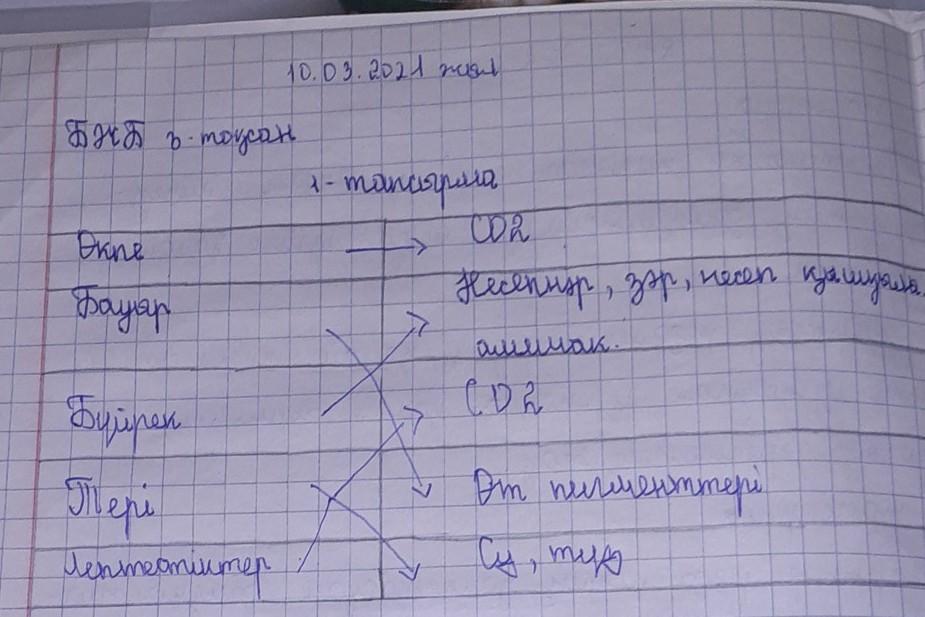 10.03.2021 жыл
БЖБ 3-тоқсан
1-тапсырма
Өкпе → CO2
Бауыр Несепнәр, зәр, несеп қышқылы,
аммиак.
Бүйрек CO2
Тері Өт пигменттері
Су, тұз